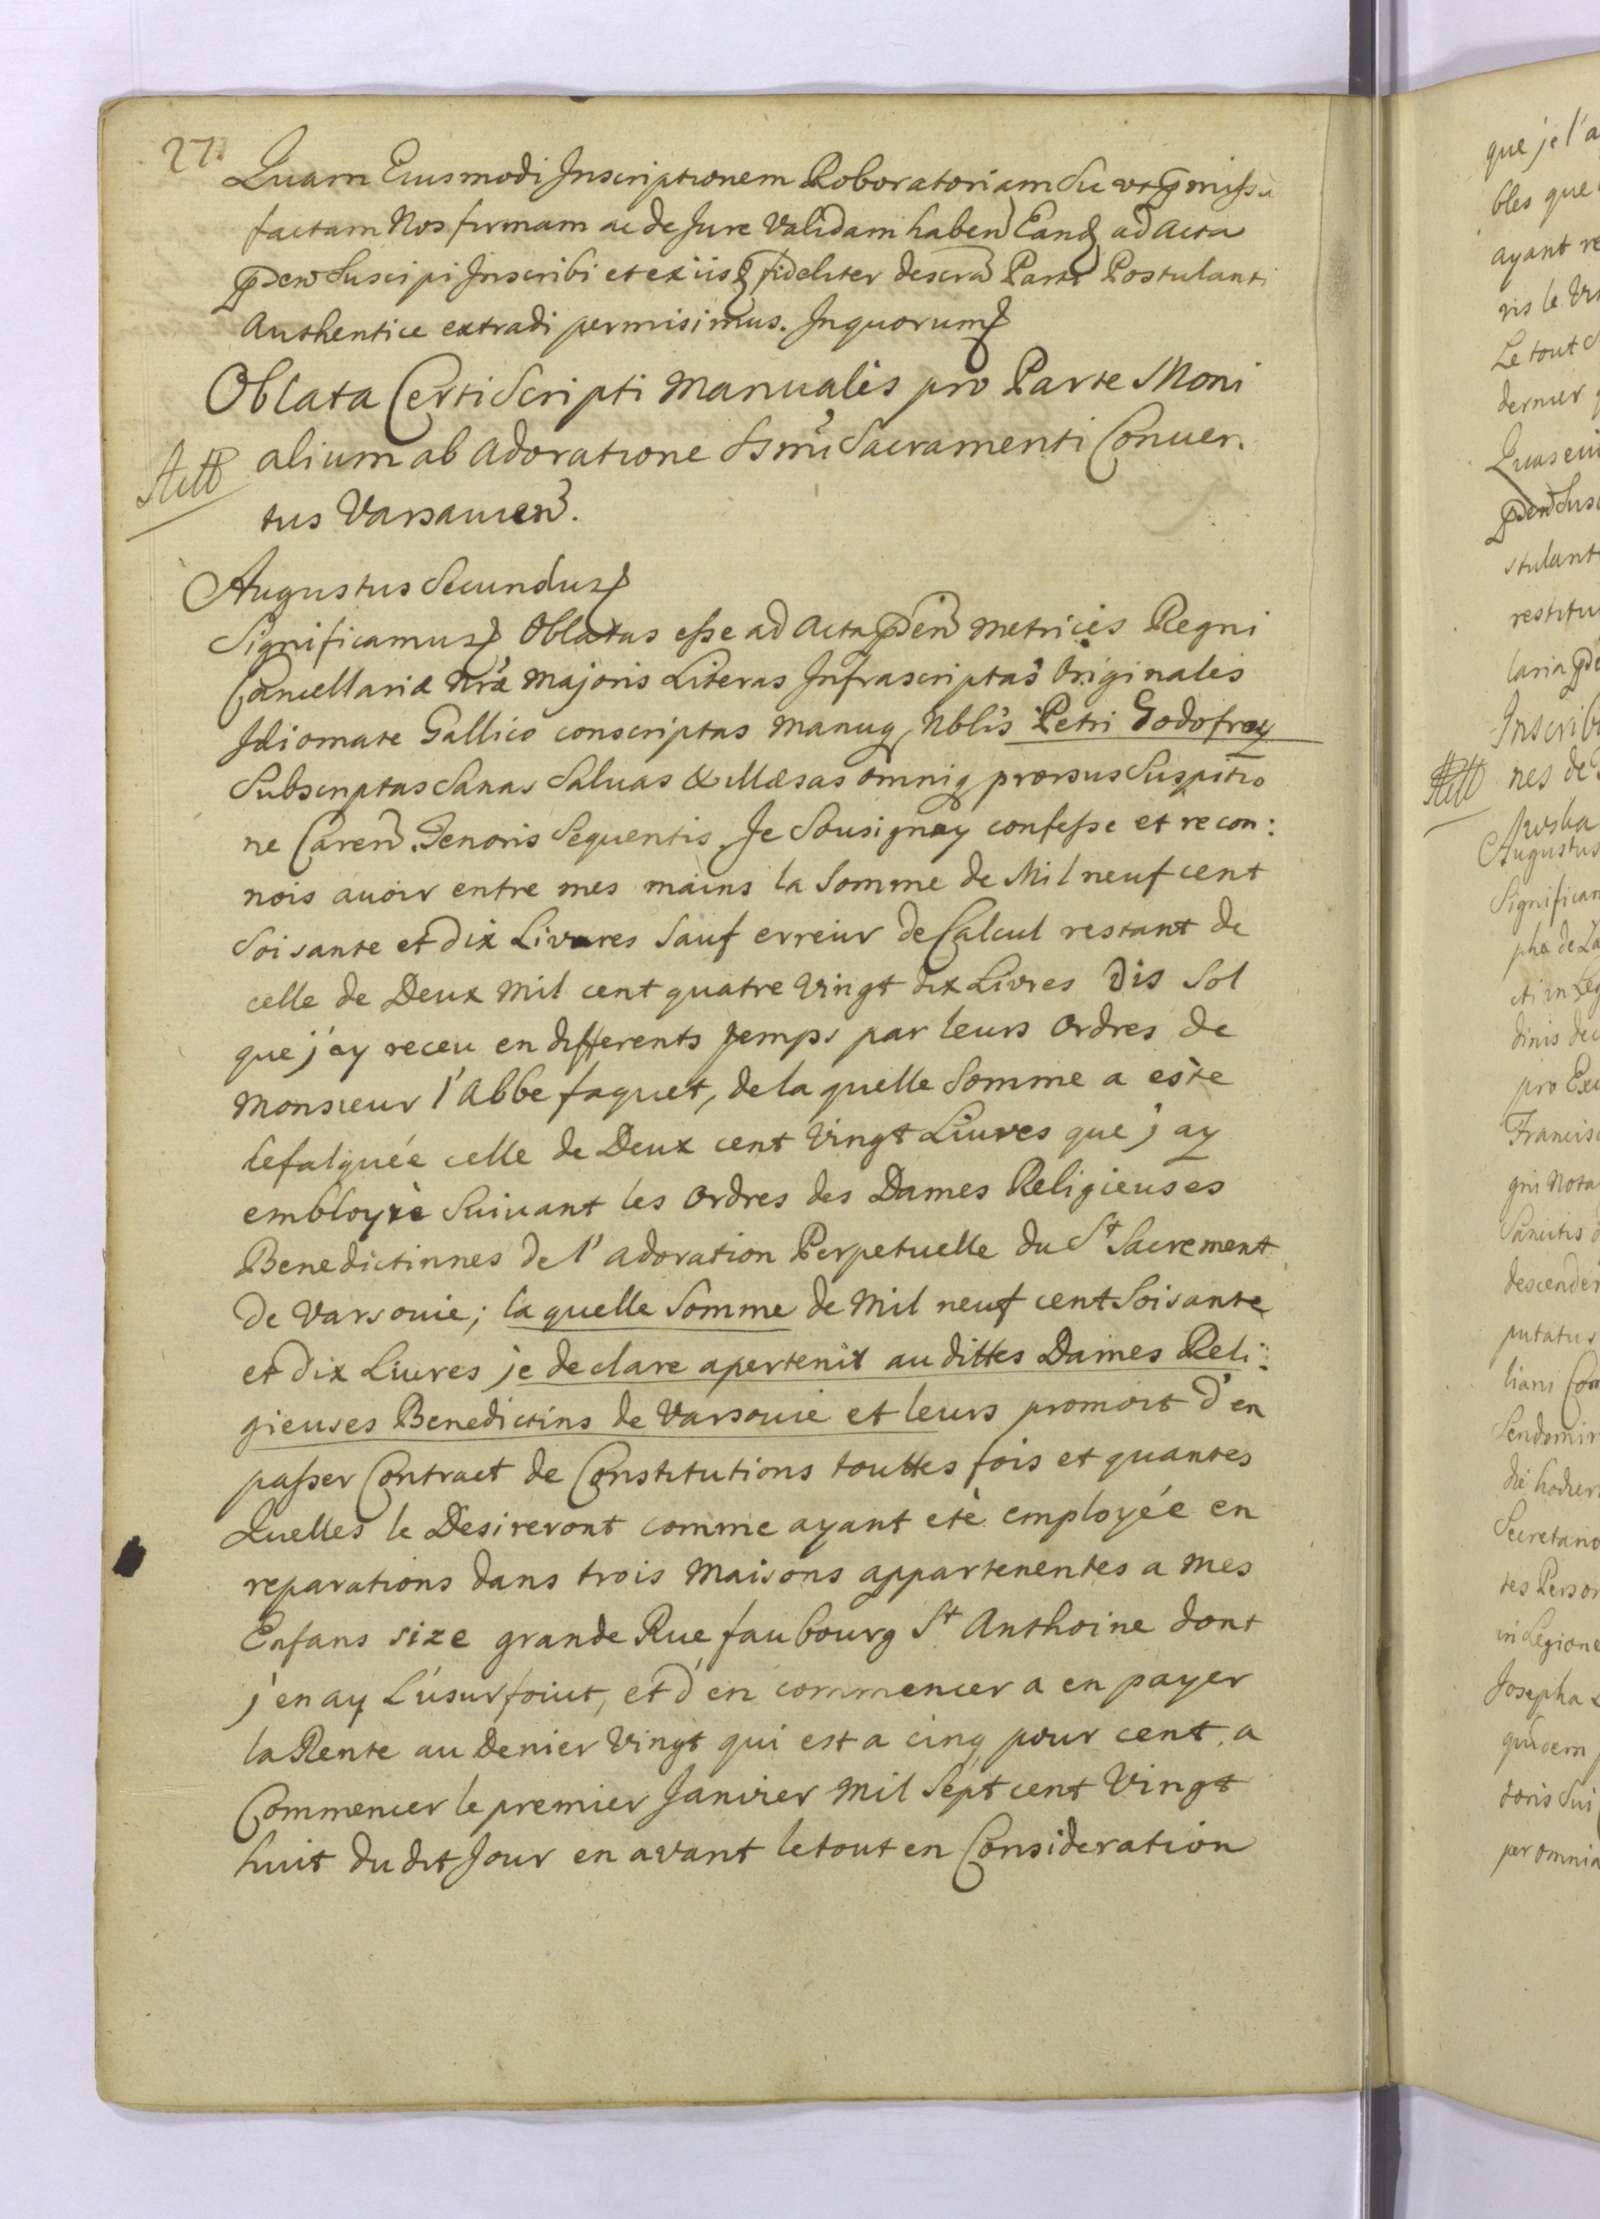 27
Quam Eiusmodi Inscriptionem Roboratoriam Sic ut pmissu
factam Nos firmam ac de Jure Validam haben Eandq ad Acta
pden Suscipi Inscribi et ex iisq fideliter descra Parti Postulanti
Authentice extradi permisimus. In quorum
Oblata Certi Scripti Manualis pro Parte Moni
alium ab Adoratione Ssmi Sacramenti Conuen.
tus Varsauien.
Augustus Secundus
Significamus Oblatas esse ad Acta pden Metrices Regni
Cancellariæ Nræ Majoris Literas Infrascriptas Originales
Idiomate Gallico conscriptas Manuq Nblis Petri Godofroy
Subscriptas Sanas Saluas & illæsas omniq prorsus Suspitio
ne Caren. Tenoris Sequentis. Je Sousignay confesse et recon:
nois auoir entre mes mains la Somme de Mil neuf cent
Soisante et dix Livres Sauf erreur de Calcul restant de
celle de Deux Mil cent quatre Vingt dix Livres Dis Sol
que j'ay receu en differents Temps par leurs Ordres de
Monsieur l'Abbe faquet, de la quelle Somme a este
defalquée celle de Deux cent Vingt Liures que j ay
embloyèe Suivant les Ordres des Dames Religieuses
Benedictinnes de l'adoration Perpetuelle du St Sacrement
De Varsouie; la quelle Somme de Mil neuf cent Soisante
et Dix Liures je declare apertenir au dittes Dames Reli:
gieuses Benedictins de Varsouie et leurs promois d'en
passer Contract de Constitutions touttes fois et quantes
Quelles le Desireront comme ayant etè employée en
reparations dans trois Maisons appartenentes a mes
Enfans size grande Rue faubourg St Anthoine dont
j'en ay L'usurfoiut, et d'en commencer a en payer
la Rente au Denier Vingt qui est a cinq pour cent. a
Commencer le premier Janvier Mil Sept cent Vingt
huit du dit Jour en avant le tout en Consideration
que je l'a
bles que
ayant re
Le tout
dernier
stulant
restitu
Inscrib
nes de
Augustus
Significam
Francisc
descender
putatus
Sendomir
Secretario
tes Person
in Legione
Josepha
per omnia